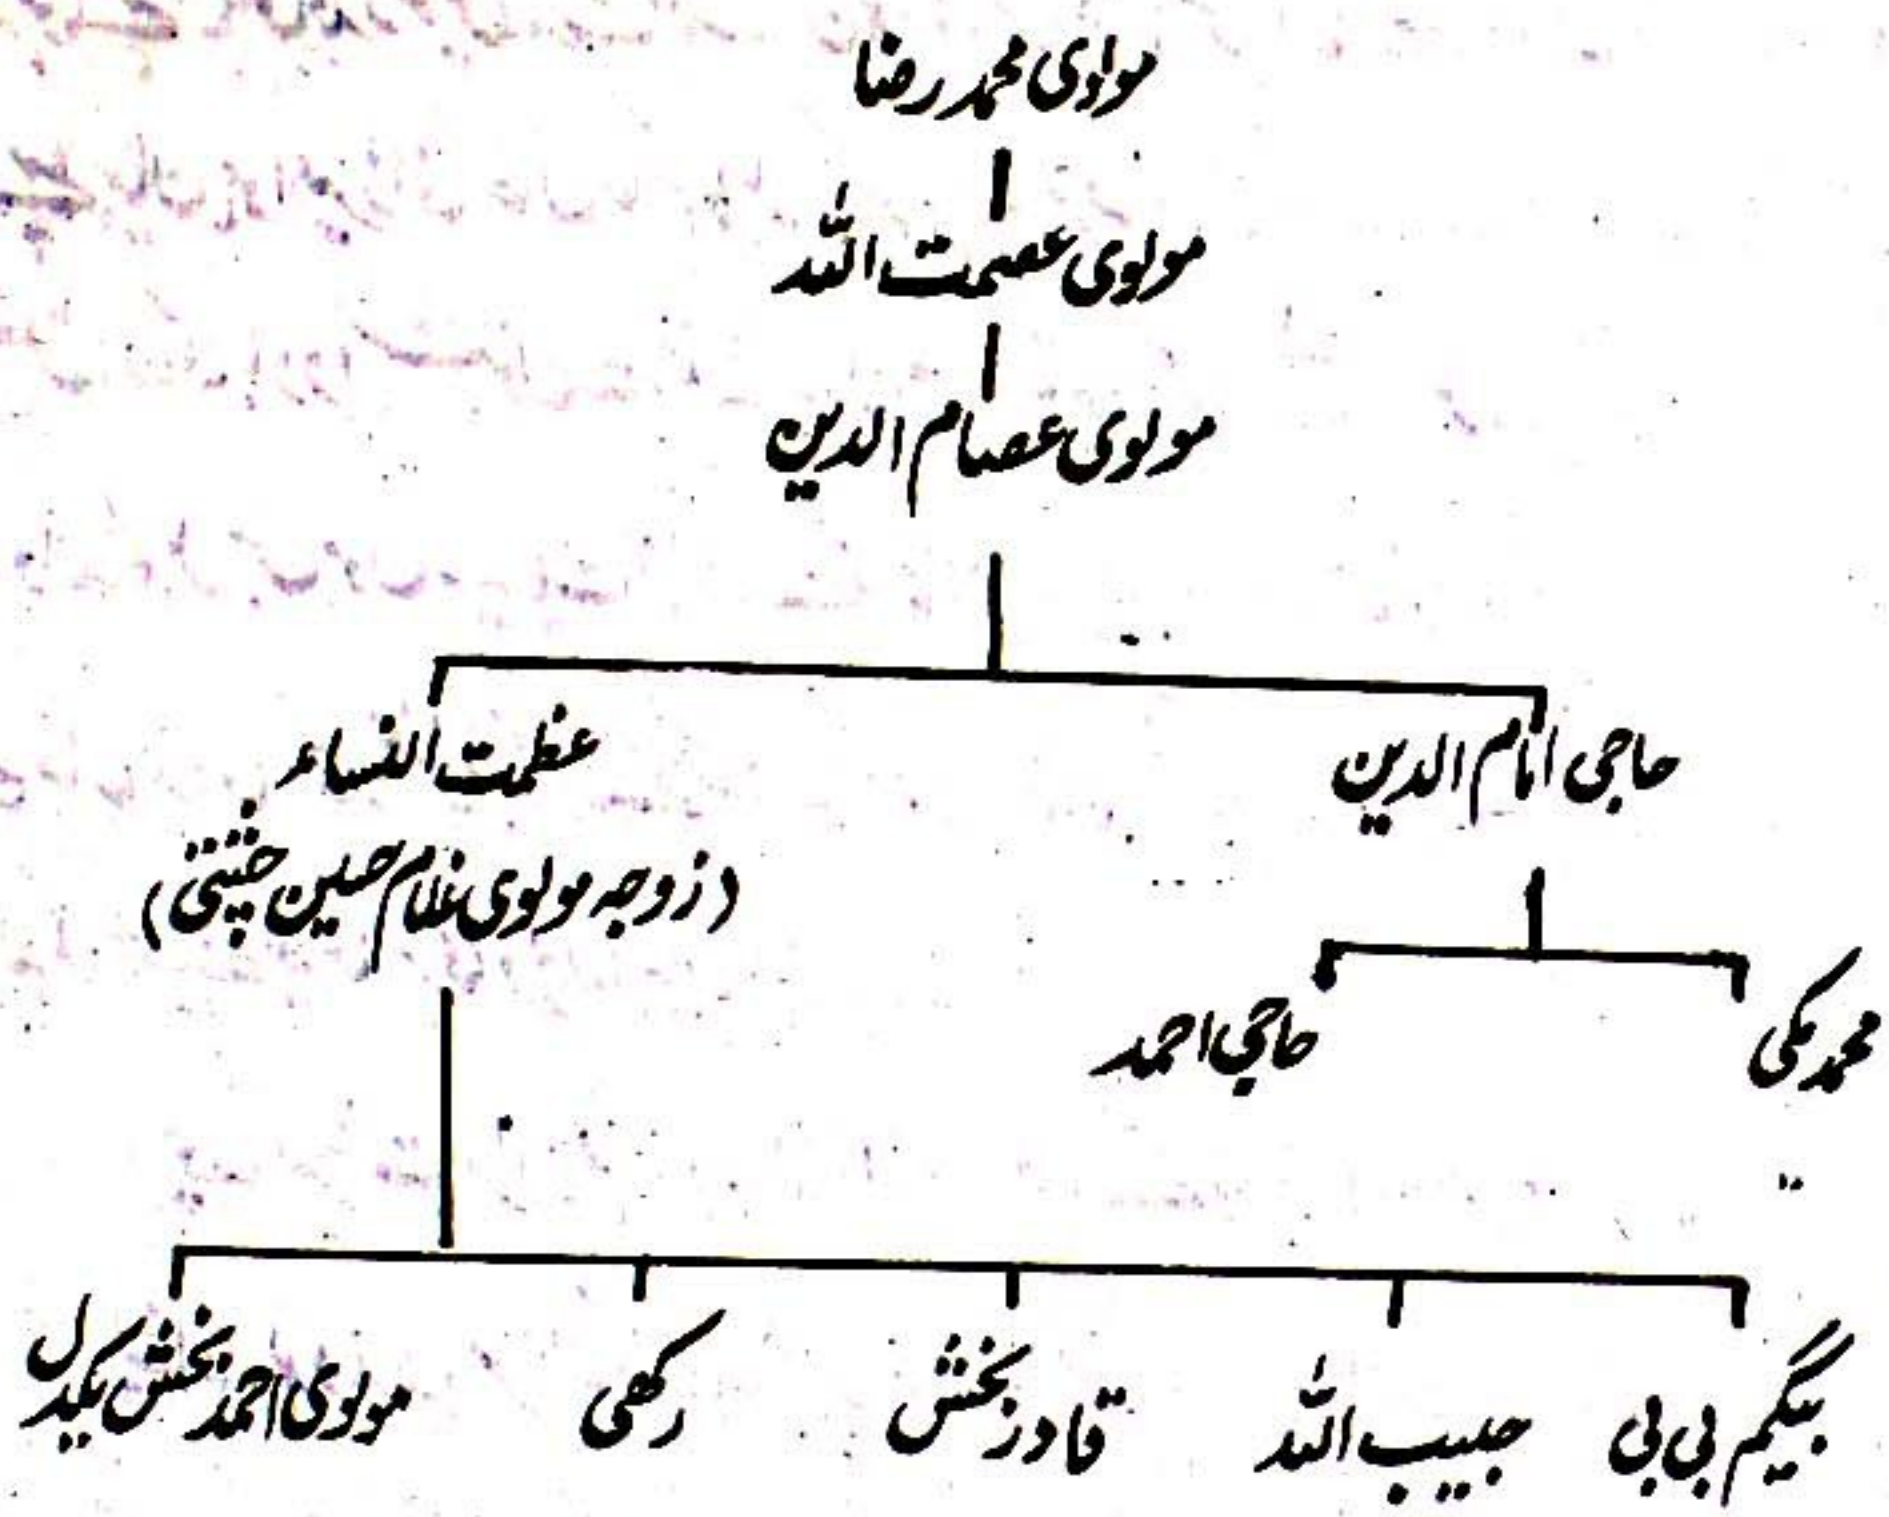 مولوی محمد رضا
مولوی عصمت اللہ
مولوی عصام الدین
حاجی امام الدین
عظمت النساء
(زوجہ مولوی غلام حسین چشتی)
محمد مکی
حاجی احمد
بیگم بی بی
حبیب اللہ
قادر بخش
رکھی
مولوی احمد بخش یکدل